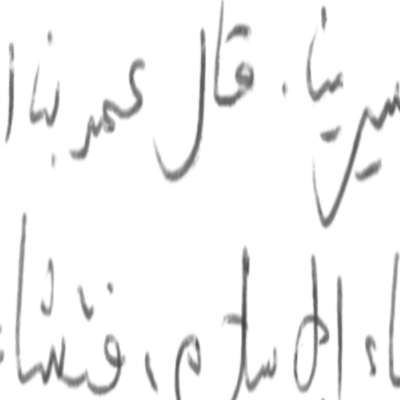 سير بنا. قال عمر بن ا
اء الإسلام، فنشأ